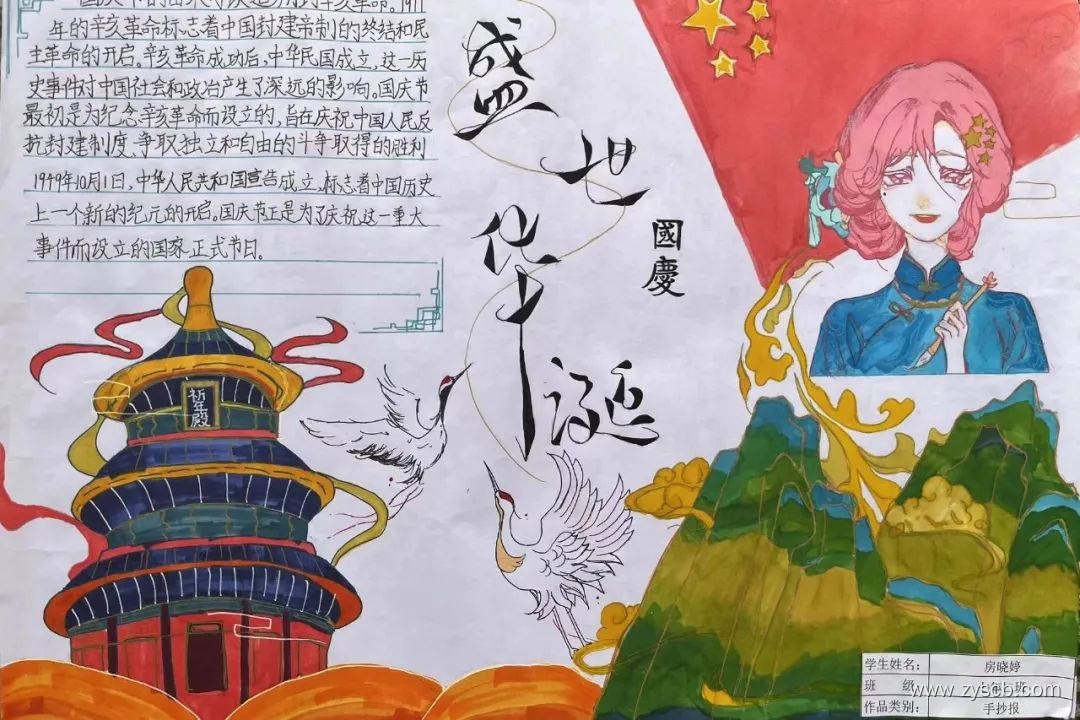 国庆节的由来可以追溯到辛亥革命。1911
年的辛亥革命标志着中国封建帝制的终结和民
主革命的开启。辛亥革命成功后,中华民国成立,这一历
史事件对中国社会和政治产生了深远的影响。国庆节
最初是为纪念辛亥革命而设立的,旨在庆祝中国人民反
抗封建制度、争取独立和自由的斗争取得的胜利
1949年10月1日,中华人民共和国宣告成立,标志着中国历史
上一个新的纪元的开启。国庆节正是为了庆祝这一重大
事件而设立的国家正式节日。
盛世华诞
國慶
祈年殿
学生姓名: 房晓婷
班 级
作品类别: 手抄报
www.zyscb.com